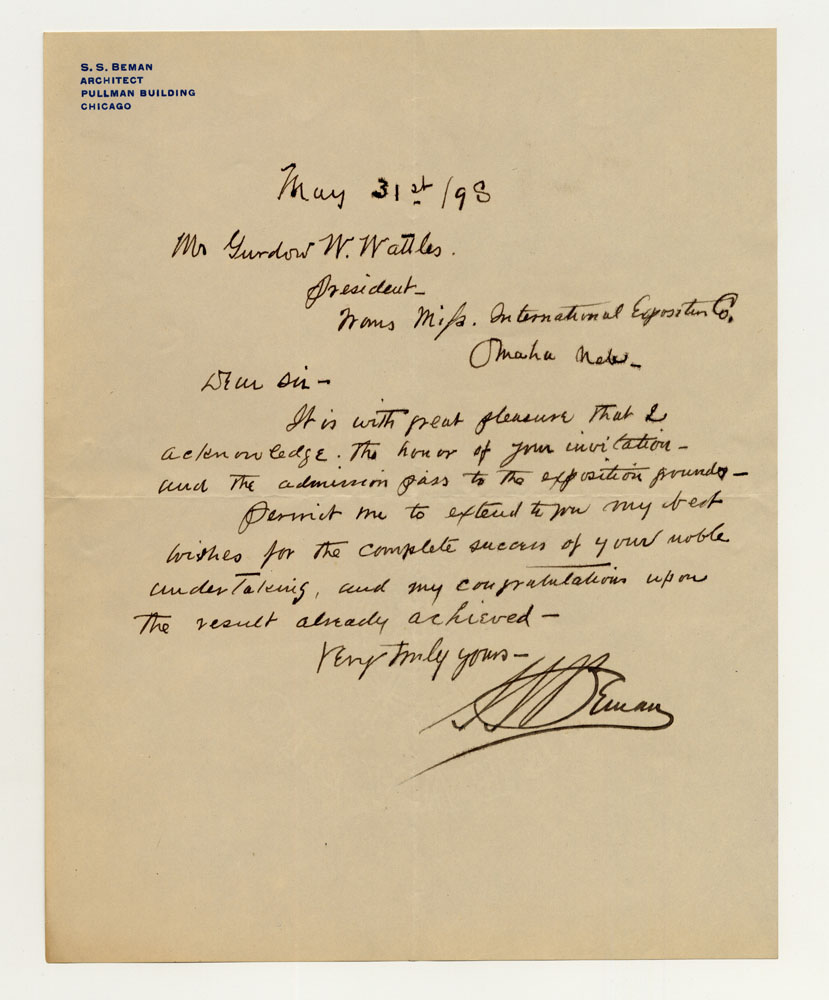 S. S. BEMAN
ARCHITECT
PULLMAN BUILDING
CHICAGO
May 31st /98
Mr Gurdow W. Wattles.
President—
Trans Miss. International Exposition Co.
Omaha Neb—
Dear Sir—
It is with great pleasure that I
acknowledge. the honor of your invitation—
and the admission pass to the exposition grounds—
Permit me to extend to you my best
wishes for the complete success of your noble
undertaking, and my congratulations upon
the result already achieved—
Very truly yours—
S S Beman